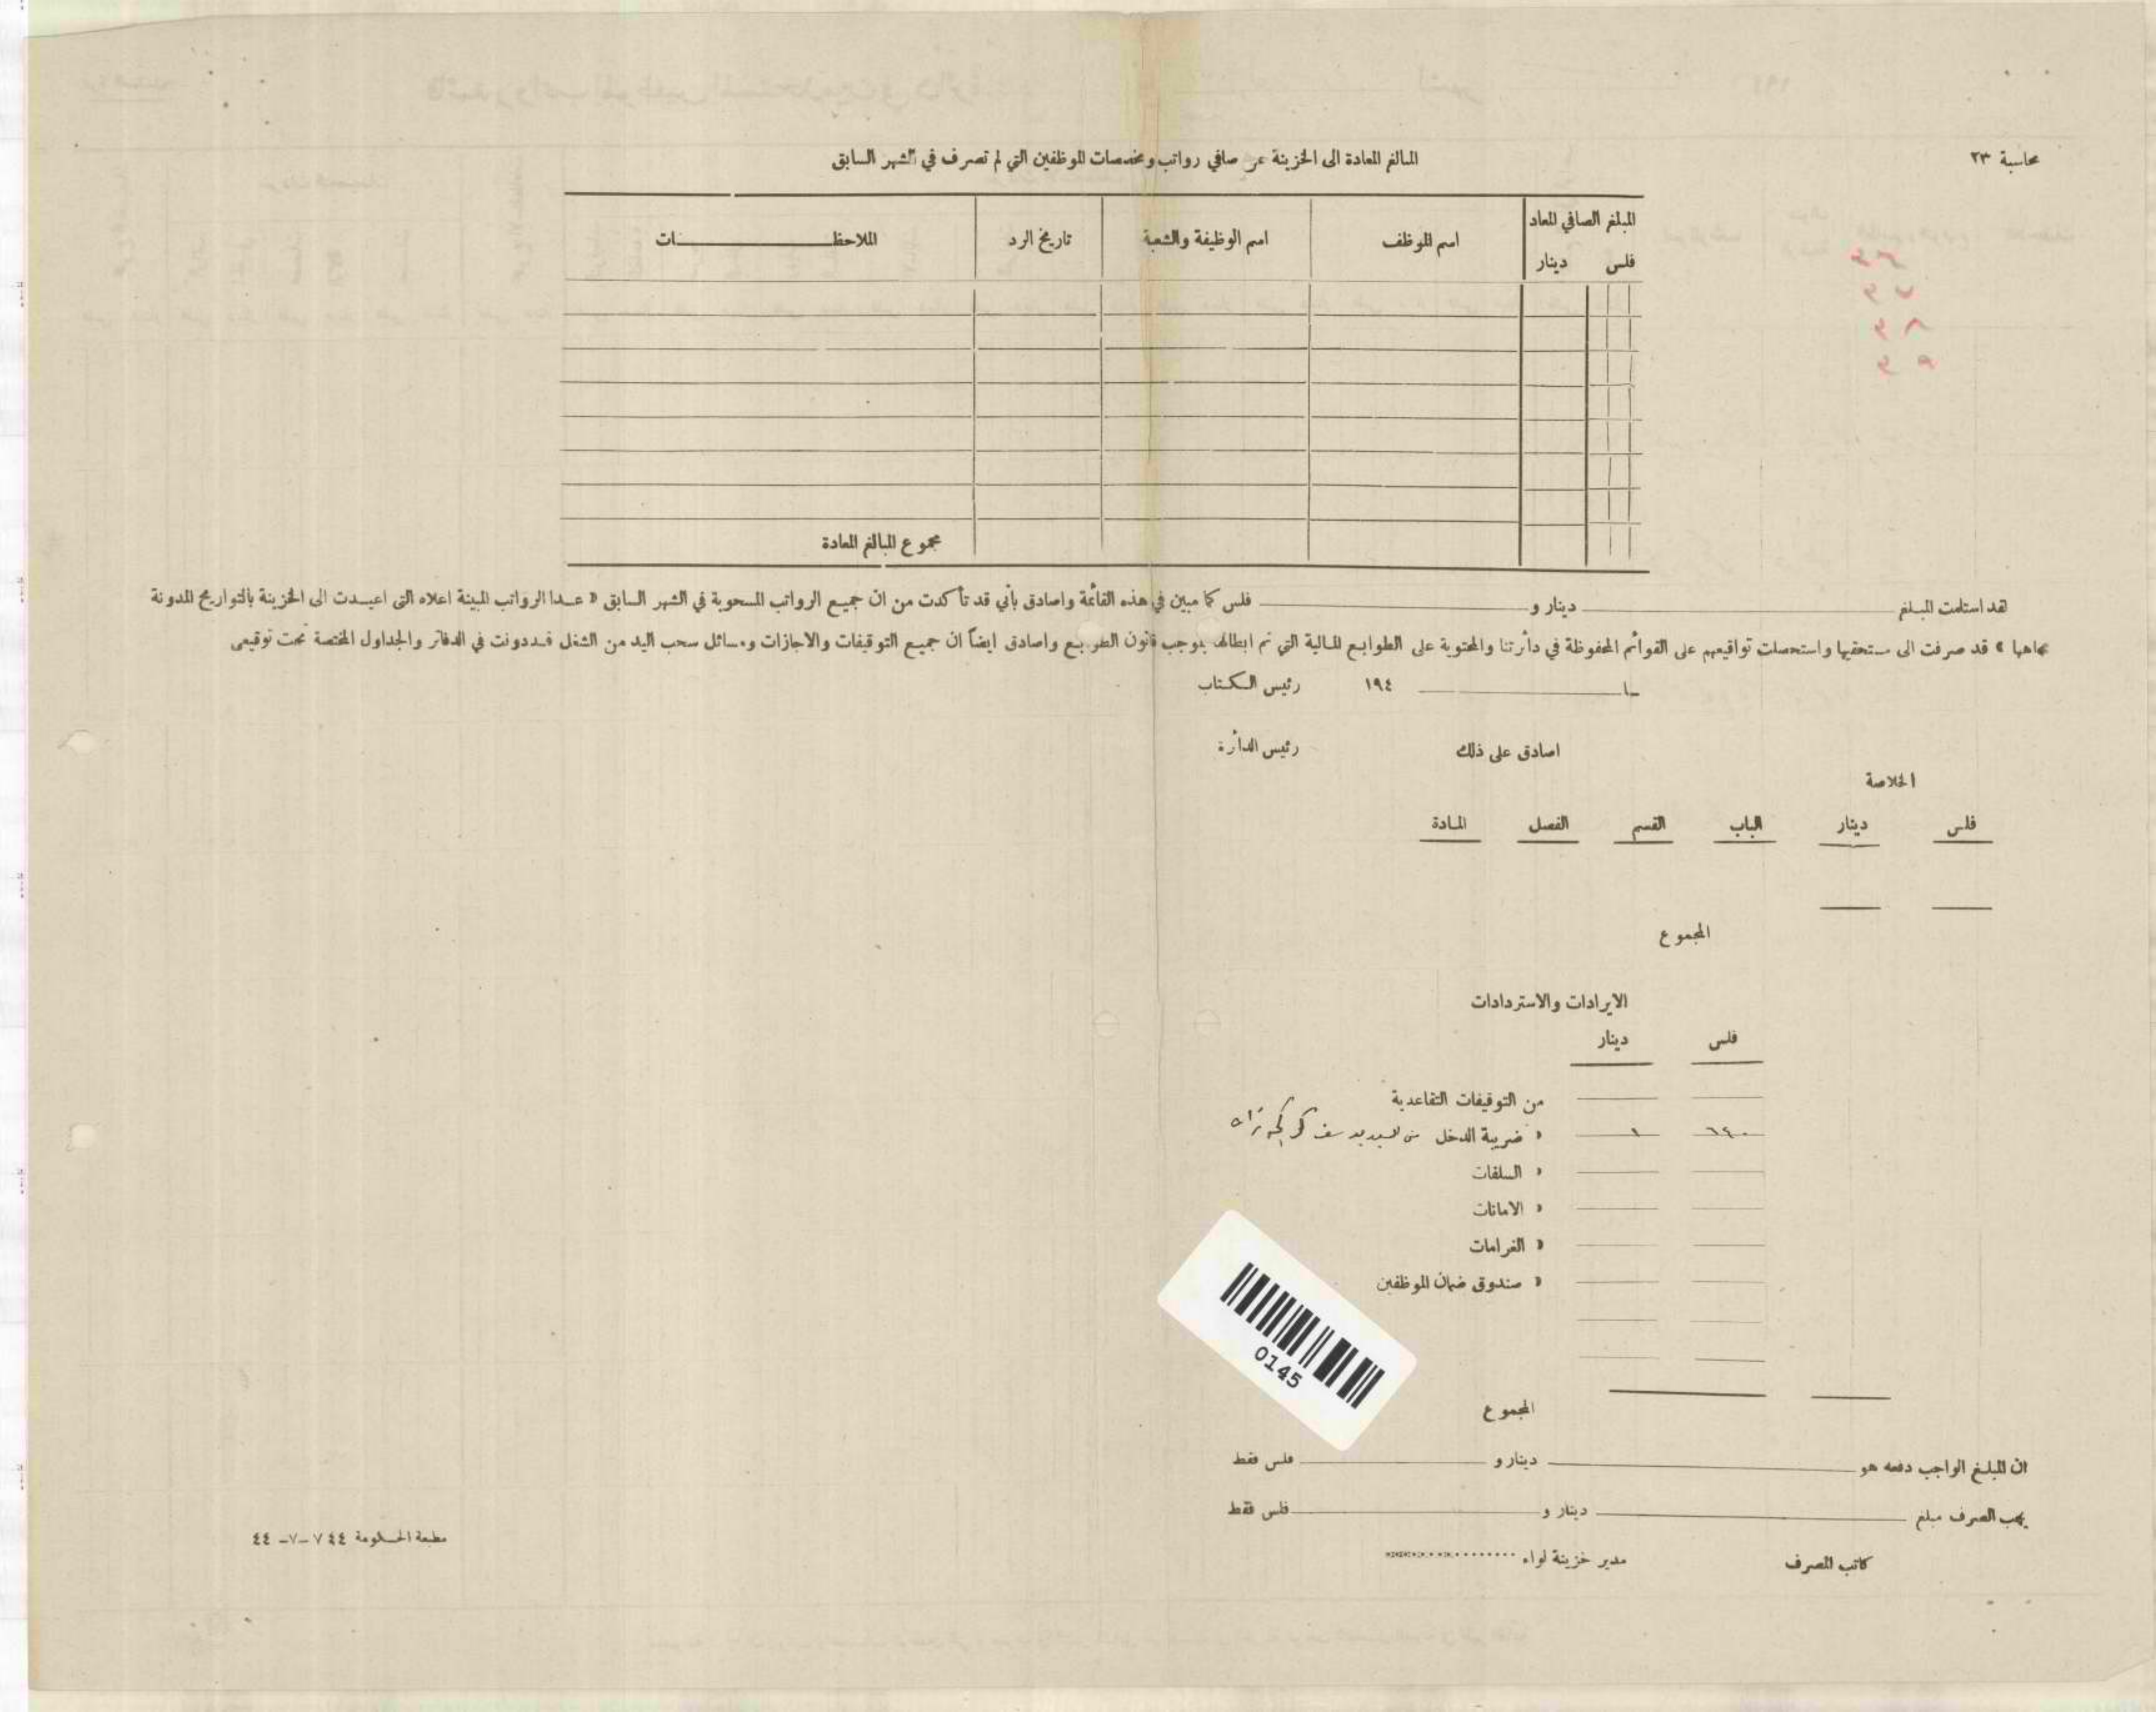 محاسبة ٢٣
المبالغ المعادة الى الخزينة عن صافي رواتب ومخصصات الموظفين التي لم تصرف في الشهر السابق
المبلغ الصافي المعاد
فلس دينار
اسم الموظف
اسم الوظيفة والشعبة
تاريخ الرد
الملاحظـــــــــات
مجموع المبالغ المعادة
لقد استلمت المبلغ ـــــــ دينار و ـــــــ فلس كما مبين في هذه القائمة واصادق بأني قد تأكدت من ان جميع الرواتب المسحوبة في الشهر السابق « عدا الرواتب المبينة اعلاه التي اعيدت الى الخزينة بالتواريخ المدونة
تجاهها » قد صرفت الى مستحقيها واستحصلت تواقيعهم على القوائم المحفوظة في دائرتنا والمحتوية على الطوابع المالية التي تم ابطالها بموجب قانون الطوابع واصادق ايضاً ان جميع التوقيفات والاجازات ومسائل سحب اليد من الشغل قد دونت في الدفاتر والجداول المختصة تحت توقيعي
ـــــــ ١٩٤ رئيس الكتاب
اصادق على ذلك رئيس الدائرة
الخلاصة
فلس دينار الباب القسم الفصل المادة
المجموع
الايرادات والاستردادات
فلس دينار
من التوقيفات التقاعدية
٦٤٠ ١ » ضريبة الدخل من السيد يوسف
» السلفات
» الامانات
» الغرامات
» صندوق ضمان الموظفين
0145
المجموع
ان المبلغ الواجب دفعه هو ـــــــ دينار و ـــــــ فلس فقط
يجب الصرف مبلغ ـــــــ دينار و ـــــــ فلس فقط
كاتب الصرف مدير خزينة لواء ........
مطبعة الحكومة ٧٤٤ -٧- ٤٤